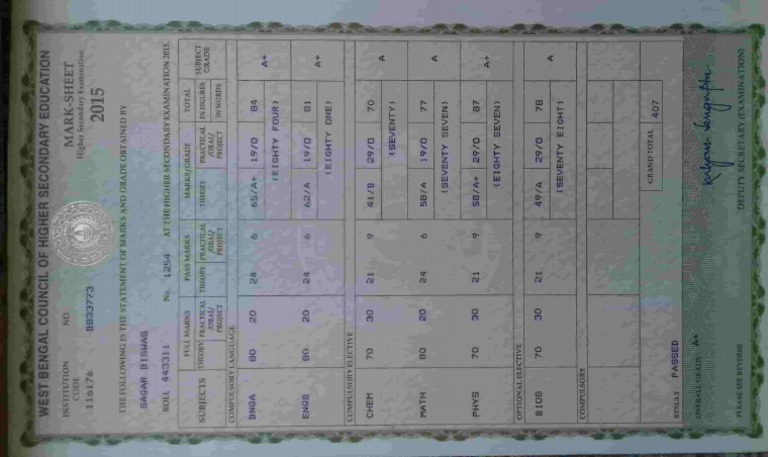 WEST BENGAL COUNCIL OF HIGHER SECONDARY EDUCATION
INSTITUTION CODE NO. MARK-SHEET
116176 8833773 Higher Secondary Examination
2015
THE FOLLOWING IS THE STATEMENT OF MARKS AND GRADE OBTAINED BY
SAGAR BISWAS
ROLL 443311 No. 1254 AT THE HIGHER SECONDARY EXAMINATION 2015.
SUBJECTS FULL MARKS PASS MARKS MARKS/GRADE TOTAL SUBJECT GRADE
THEORY PRACTICAL /ORAL/ PROJECT THEORY PRACTICAL /ORAL/ PROJECT THEORY PRACTICAL /ORAL/ PROJECT IN FIGURES IN WORDS
COMPULSORY LANGUAGE
BNGA 80 20 24 6 65/A+ 19/O 84 A+
(EIGHTY FOUR)
ENGB 80 20 24 6 62/A 19/O 81 A+
(EIGHTY ONE)
COMPULSORY ELECTIVE
CHEM 70 30 21 9 41/B 29/O 70 A
(SEVENTY)
MATH 80 20 24 6 58/A 19/O 77 A
(SEVENTY SEVEN)
PHYS 70 30 21 9 58/A+ 29/O 87 A+
(EIGHTY SEVEN)
OPTIONAL ELECTIVE
BIOS 70 30 21 9 49/A 29/O 78 A
(SEVENTY EIGHT)
COMPULSORY
GRAND TOTAL 407
RESULT PASSED
OVERALL GRADE: A+
PLEASE SEE REVERSE DEPUTY SECRETARY (EXAMINATION)